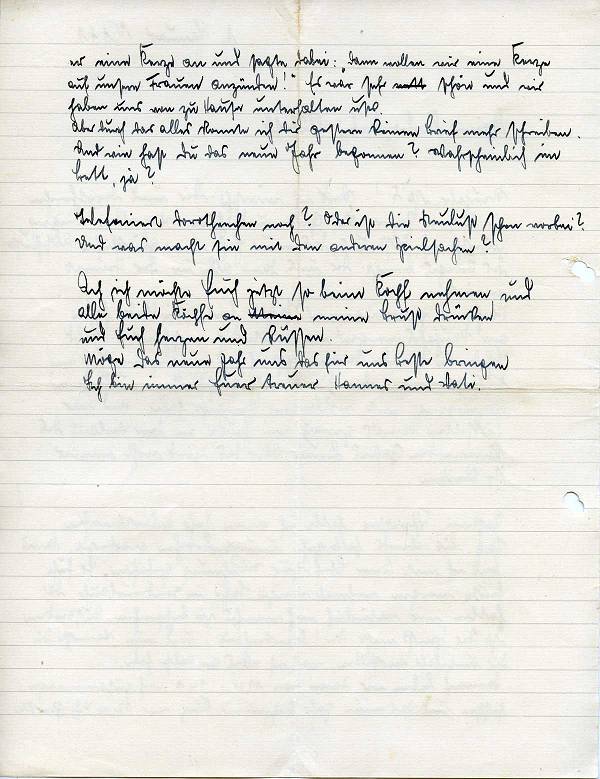 er eine Kerze an und sagte dabei: "Dann wollen wir eine Kerze
auf unsere Frauen anzünden!" Es war sehr nett schön und wir
haben uns von zu Hause unterhalten usw.
Aber durch das alles konnte ich dir gestern keinen Brief mehr schreiben.
Und wie hast du das neue Jahr begonnen? Wahrscheinlich im
Bett, ja?
Telefoniert Dorothenchen noch? Oder ist die Neulust schon vorbei?
Und was macht sie mit den anderen Spielsachen?
Ach ich möchte Euch jetzt so beim Kopf nehmen und
alle beide Köpfe an meine Brust drücken
und Euch herzen und küssen.
Möge das neue Jahr uns das für uns beste bringen
Ich bin immer Euer treuer Hannes und Vati.